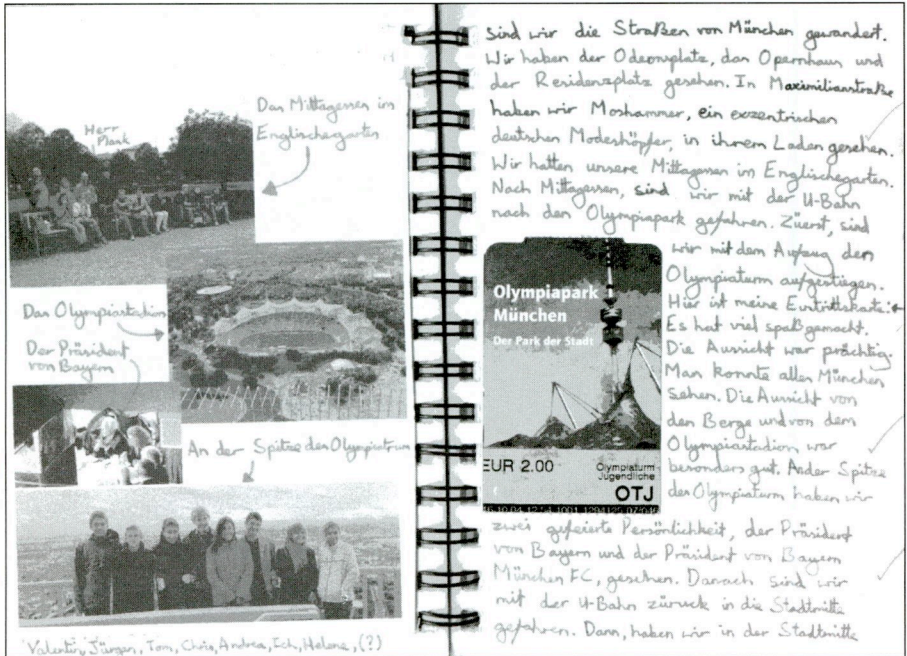 Herr
Plank
Das Mittagessen im
Englischegarten
Das Olympiastadion
Der Präsident
von Bayern
An der Spitze des Olympiaturm
Valentin, Jürgen, Tom, Chris, Andrea, Ich, Helene, (?)
sind wir die Straßen von München gewandert.
Wir haben der Odeonsplatz, das Opernhaus und
der Residenzplatz gesehen. In Maximilianstraße
haben wir Moshammer, ein exzentrischen
deutschen Modeshöpfer, in ihrem Laden gesehen.
Wir hatten unsere Mittagessen im Englischegarten.
Nach Mittagessen, sind wir mit der U-Bahn
nach den Olympiapark gefahren. Züerst, sind
wir mit dem Aufzug den
Olympiaturm aufgestiegen.
Hier ist meine Eintrittskarte:
Es hat viel spaß gemacht.
Die Aussicht war prächtig.
Man konnte alles München
sehen. Die Aussicht von
den Berge und von dem
Olympiastadion war
besonders gut. An der Spitze
des Olympiaturm haben wir
zwei gefeierte Persönlichkeit, der Präsident
von Bayern und der Präsident von Bayern
München FC, gesehen. Danach sind wir
mit der U-Bahn züruck in die Stadtmitte
gefahren. Dann, haben wir in der Stadtmitte
Olympiapark
München
Der Park der Stadt
EUR 2.00
Olympiaturm
Jugendliche
OTJ